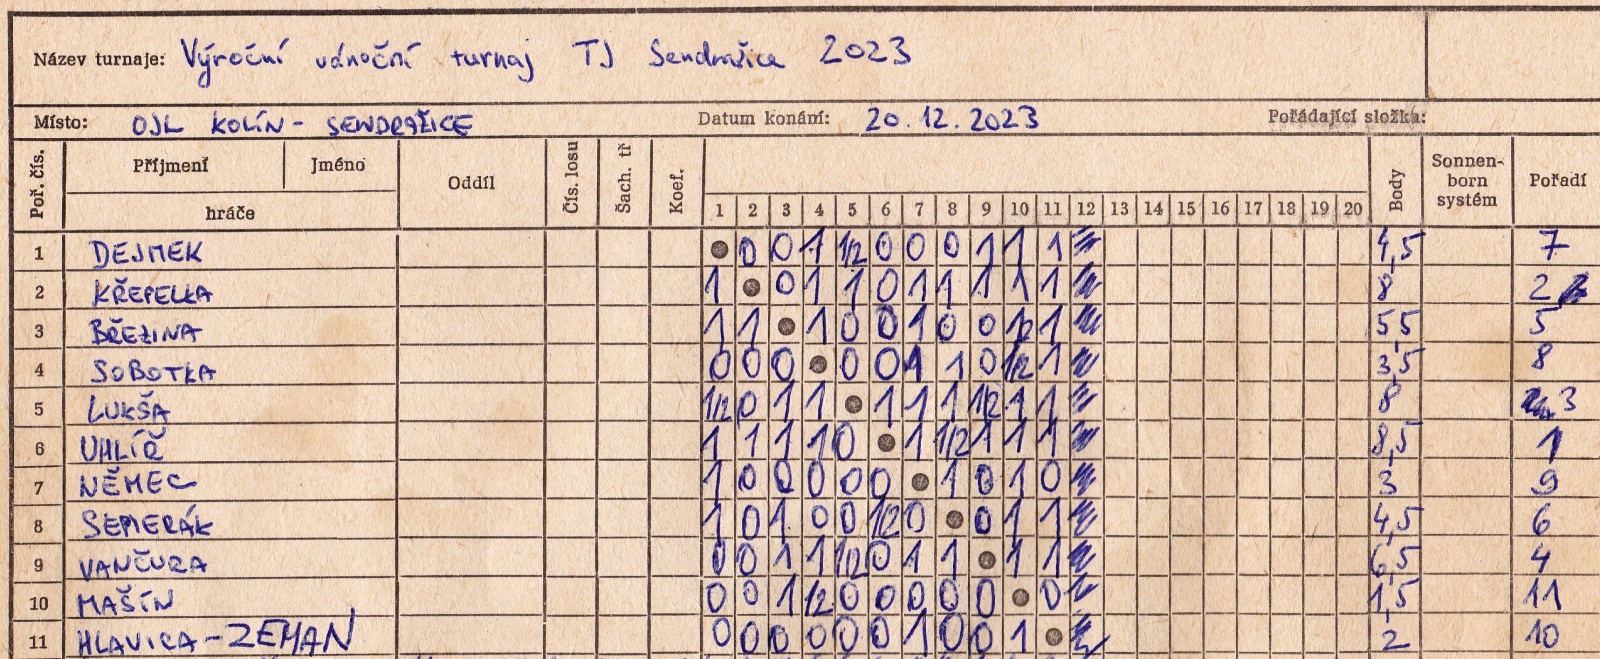 Název turnaje: Výroční vánoční turnaj TJ Sendražice 2023
Místo: OJL KOLÍN - SENDRAŽICE Datum konání: 20.12.2023 Pořádající složka:
Poř. čís. Příjmení Jméno hráče Oddíl Čís. losu Šach. tř Koef. 1 2 3 4 5 6 7 8 9 10 11 12 13 14 15 16 17 18 19 20 Body Sonnen-born systém Pořadí
1 DEJMEK 0 0 1 1/2 0 0 0 1 1 1 4,5 7
2 KŘEPELKA 1 0 1 1 0 1 1 1 1 1 8 2
3 BŘEZINA 1 1 1 0 0 1 0 0 1/2 1 5,5 5
4 SOBOTKA 0 0 0 0 0 1 1 0 1/2 1 3,5 8
5 LUKŠA 1/2 0 1 1 1 1 1 1/2 1 1 8 3
6 UHLÍŘ 1 1 1 1 0 1 1/2 1 1 1 8,5 1
7 NĚMEC 1 0 0 0 0 0 1 0 1 0 3 9
8 SEMERÁK 1 0 1 0 0 1/2 0 0 1 1 4,5 6
9 VANČURA 0 0 1 1 1/2 0 1 1 1 1 6,5 4
10 MAŠÍN 0 0 1/2 1/2 0 0 0 0 0 0 1,5 11
11 HLAVICA - ZEMAN 0 0 0 0 0 0 1 0 0 1 2 10